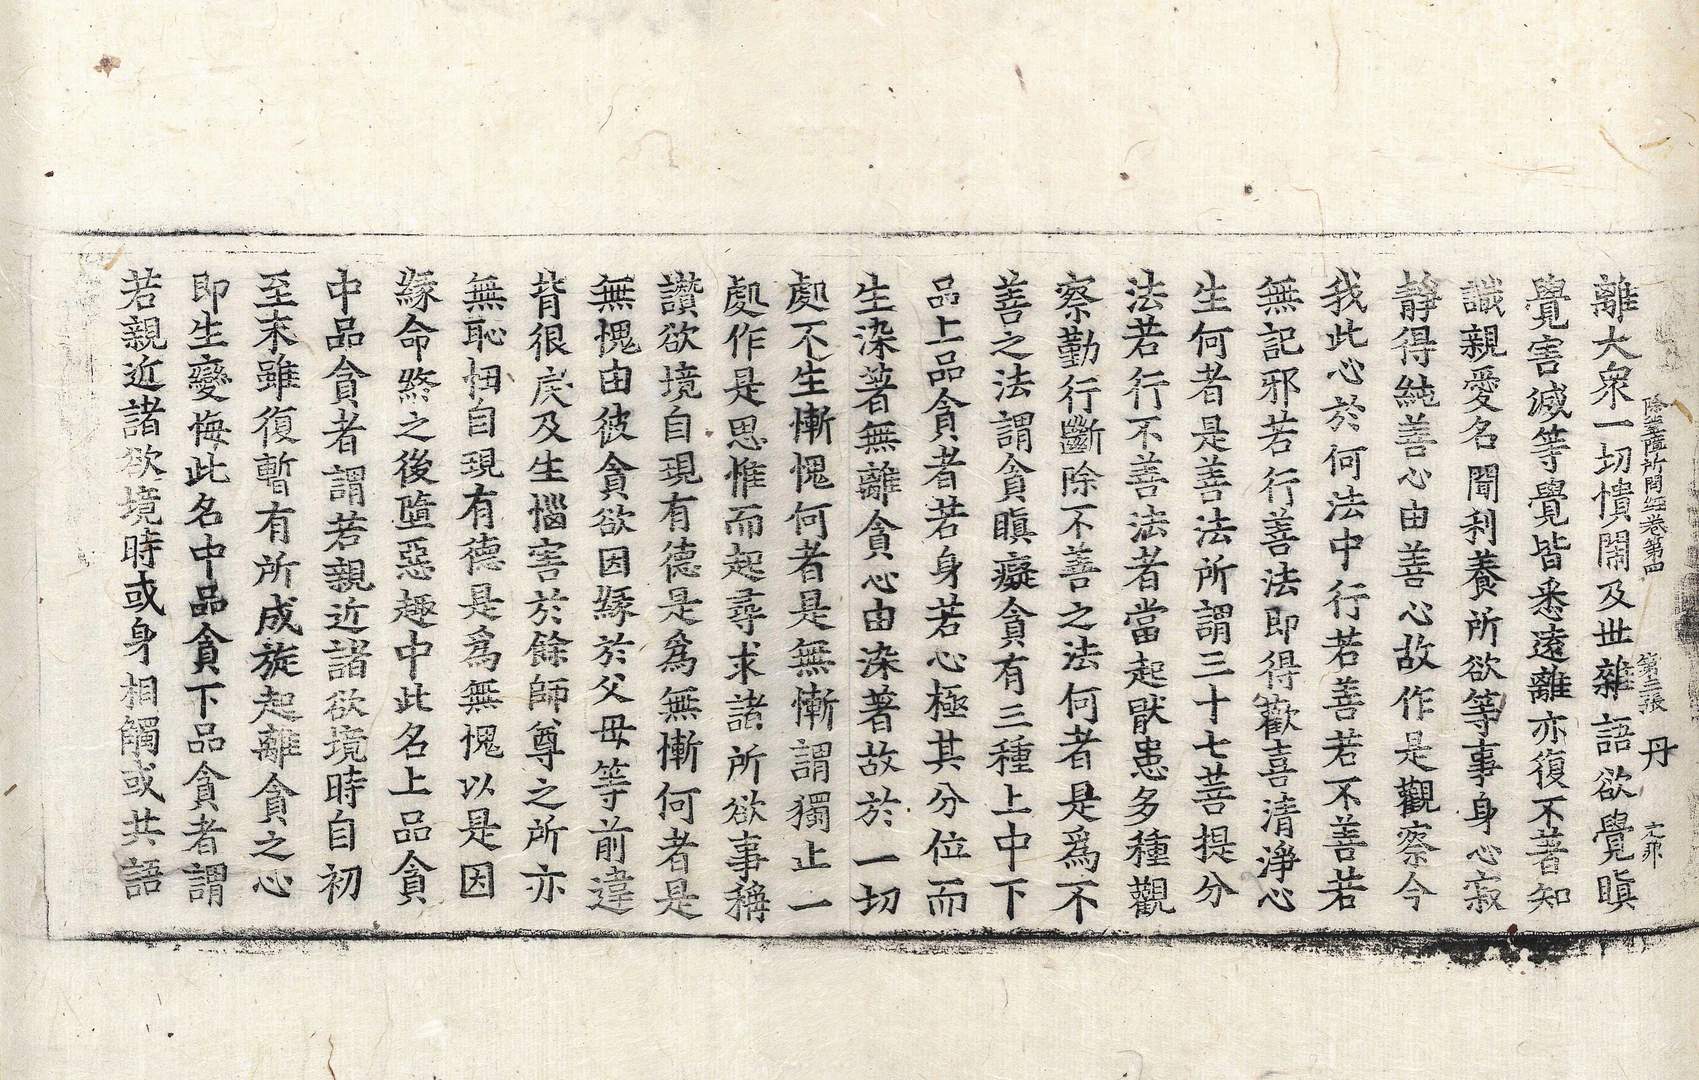 除蓋障菩薩所問經卷第四 第三張 丹
離大衆一切憒閙及世雜語欲覺瞋
覺害滅等覺皆悉遠離亦復不著知
識親愛名聞利養所欲等事身心寂
靜得純善心由善心故作是觀察今
我此心於何法中行若善若不善若
無記邪若行善法即得歡喜清淨心
生何者是善法所謂三十七菩提分
法若行不善法者當起猒患多種觀
察勤行斷除不善之法何者是爲不
善之法謂貪瞋癡貪有三種上中下
品上品貪者若身若心極其分位而
生染著無離貪心由染著故於一切
處不生慚愧何者是無慚謂獨止一
處作是思惟而起尋求諸所欲事稱
讚欲境自現有德是爲無慚何者是
無愧由彼貪欲因緣於父母等前違
背很戾及生惱害於餘師尊之所亦
無恥忸自現有德是爲無愧以是因
緣命終之後墮惡趣中此名上品貪
中品貪者謂若親近諸欲境時自初
至末雖復暫有所成旋起離貪之心
即生變悔此名中品貪下品貪者謂
若親近諸欲境時或身相觸或共語